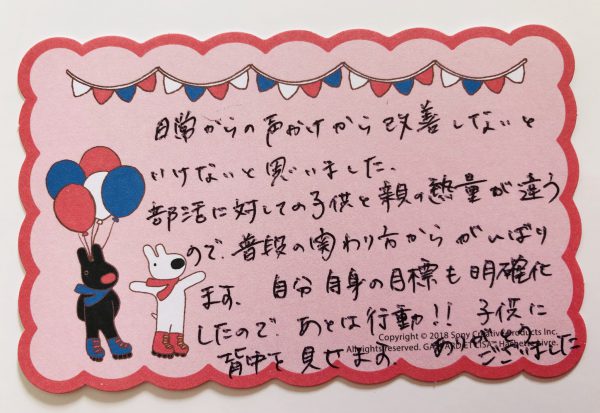 日常からの声かけから改善しないと
いけないと思いました。
部活に対しての子供と親の熱量が違う
ので、普段の関わり方からがんばり
ます。自分自身の目標も明確化
したので、あとは行動!! 子供に
背中を見せます。ありがとう
ございました
Copyright © 2018 Sony Creative Products Inc.
All rights reserved. GASPARD ET LISA™ Hachette Livre.